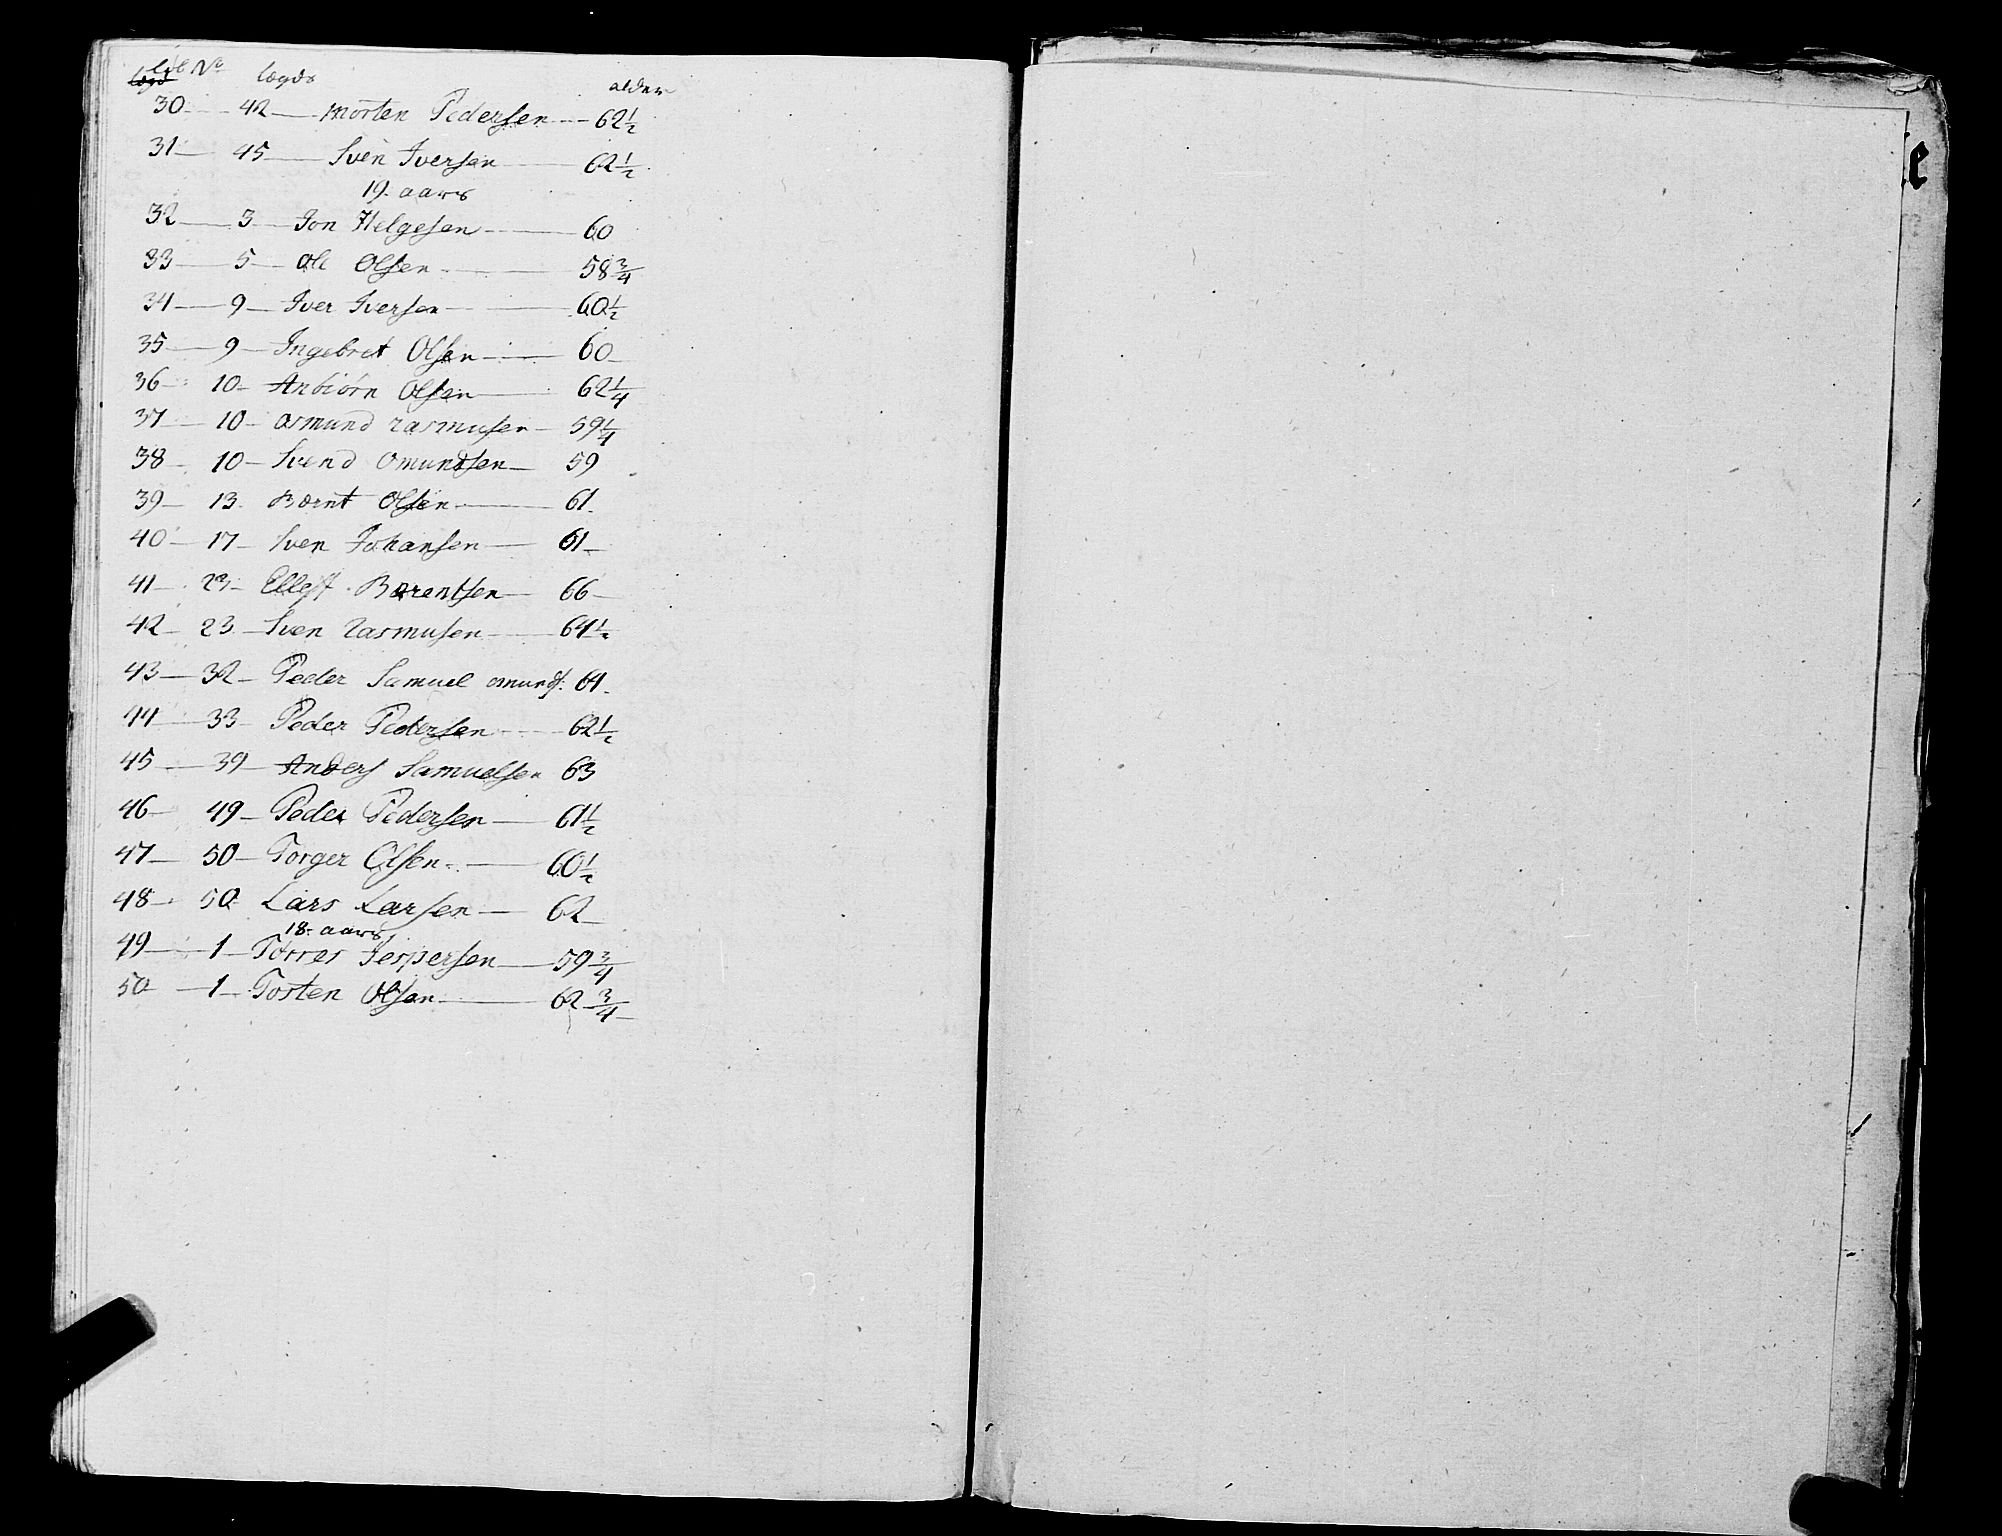 Løb No lægds alder
30 42 Morten Pedersen 62 1/2
31 45 Sven Iversen 62 1/2
19 aars
32 3 Jon Helgesen 60
33 5 Ole Olsen 58 3/4
34 9 Iver Iversen 60 1/2
35 9 Ingebret Olsen 60
36 10 Anbiørn Olsen 62 1/4
37 10 Osmund Rasmusen 59 1/4
38 10 Svend Omundsen 59
39 13 Bærnt Olsen 61
40 17 Sven Johansen 61
41 23 Ellef Barentsen 66
42 23 Sven Rasmusen 64 1/2
43 32 Peder Samuel omunds: 61
44 33 Peder Pedersen 62 1/2
45 39 Anders Samuelsen 63
46 49 Peder Pedersen 61 1/2
47 50 Torger Olsen 60 1/2
48 50 Lars Larsen 62
18 aars
49 1 Torres Jespersen 59 3/4
50 1 Tosten Olsen 62 3/4